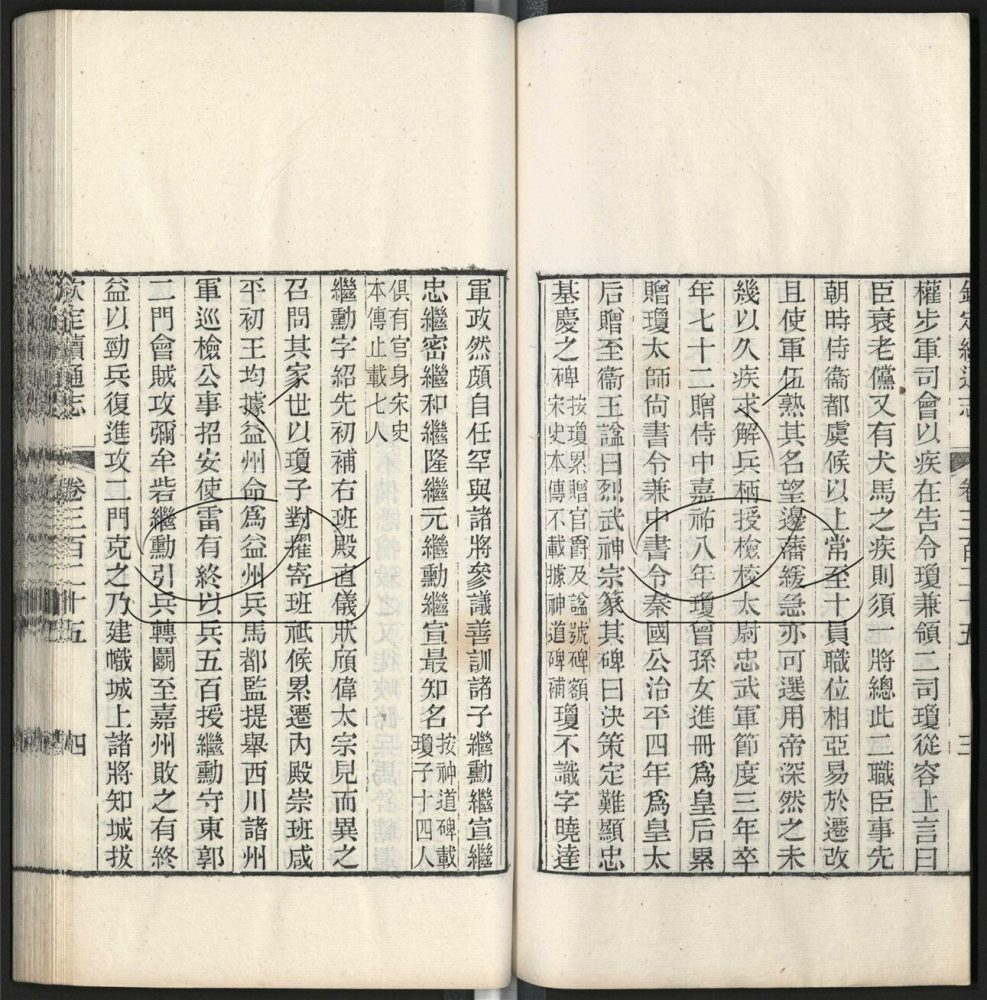 欽定續通志 卷三百二十五 三
權步軍司會以疾在告令瓊兼領二司瓊從容上言曰
臣衰老儻又有犬馬之疾則須一將總此二職臣事先
朝時侍衞都虞候以上常至十員職位相亞易於遷改
且使軍伍熟其名望邊藩緩急亦可選用帝深然之未
幾以久疾求解兵柄授檢校太尉忠武軍節度三年卒
年七十二贈侍中嘉祐八年瓊曾孫女進冊爲皇后累
贈瓊太師尚書令兼中書令秦國公治平四年爲皇太
后贈至衞王諡曰烈武神宗篆其碑曰決策定難顯忠
基慶之碑按瓊累贈官爵及諡號碑額宋史本傳不載據神道碑補瓊不識字曉達
軍政然頗自任罕與諸將參議善訓諸子繼勳繼宣繼
忠繼密繼和繼隆繼元繼勳繼宣最知名按神道碑載瓊子十四人
俱有官身宋史本傳止載七人
繼勳字紹先初補右班殿直儀狀頎偉太宗見而異之
召問其家世以瓊子對擢寄班祗候累遷內殿崇班咸
平初王均據益州命爲益州兵馬都監提舉西川諸州
軍巡檢公事招安使雷有終以兵五百授繼勳守東郭
二門會賊攻彌牟砦繼勳引兵轉鬭至嘉州敗之有終
益以勁兵復進攻二門克之乃建幟城上諸將知城拔
欽定續通志 卷三百二十五 四